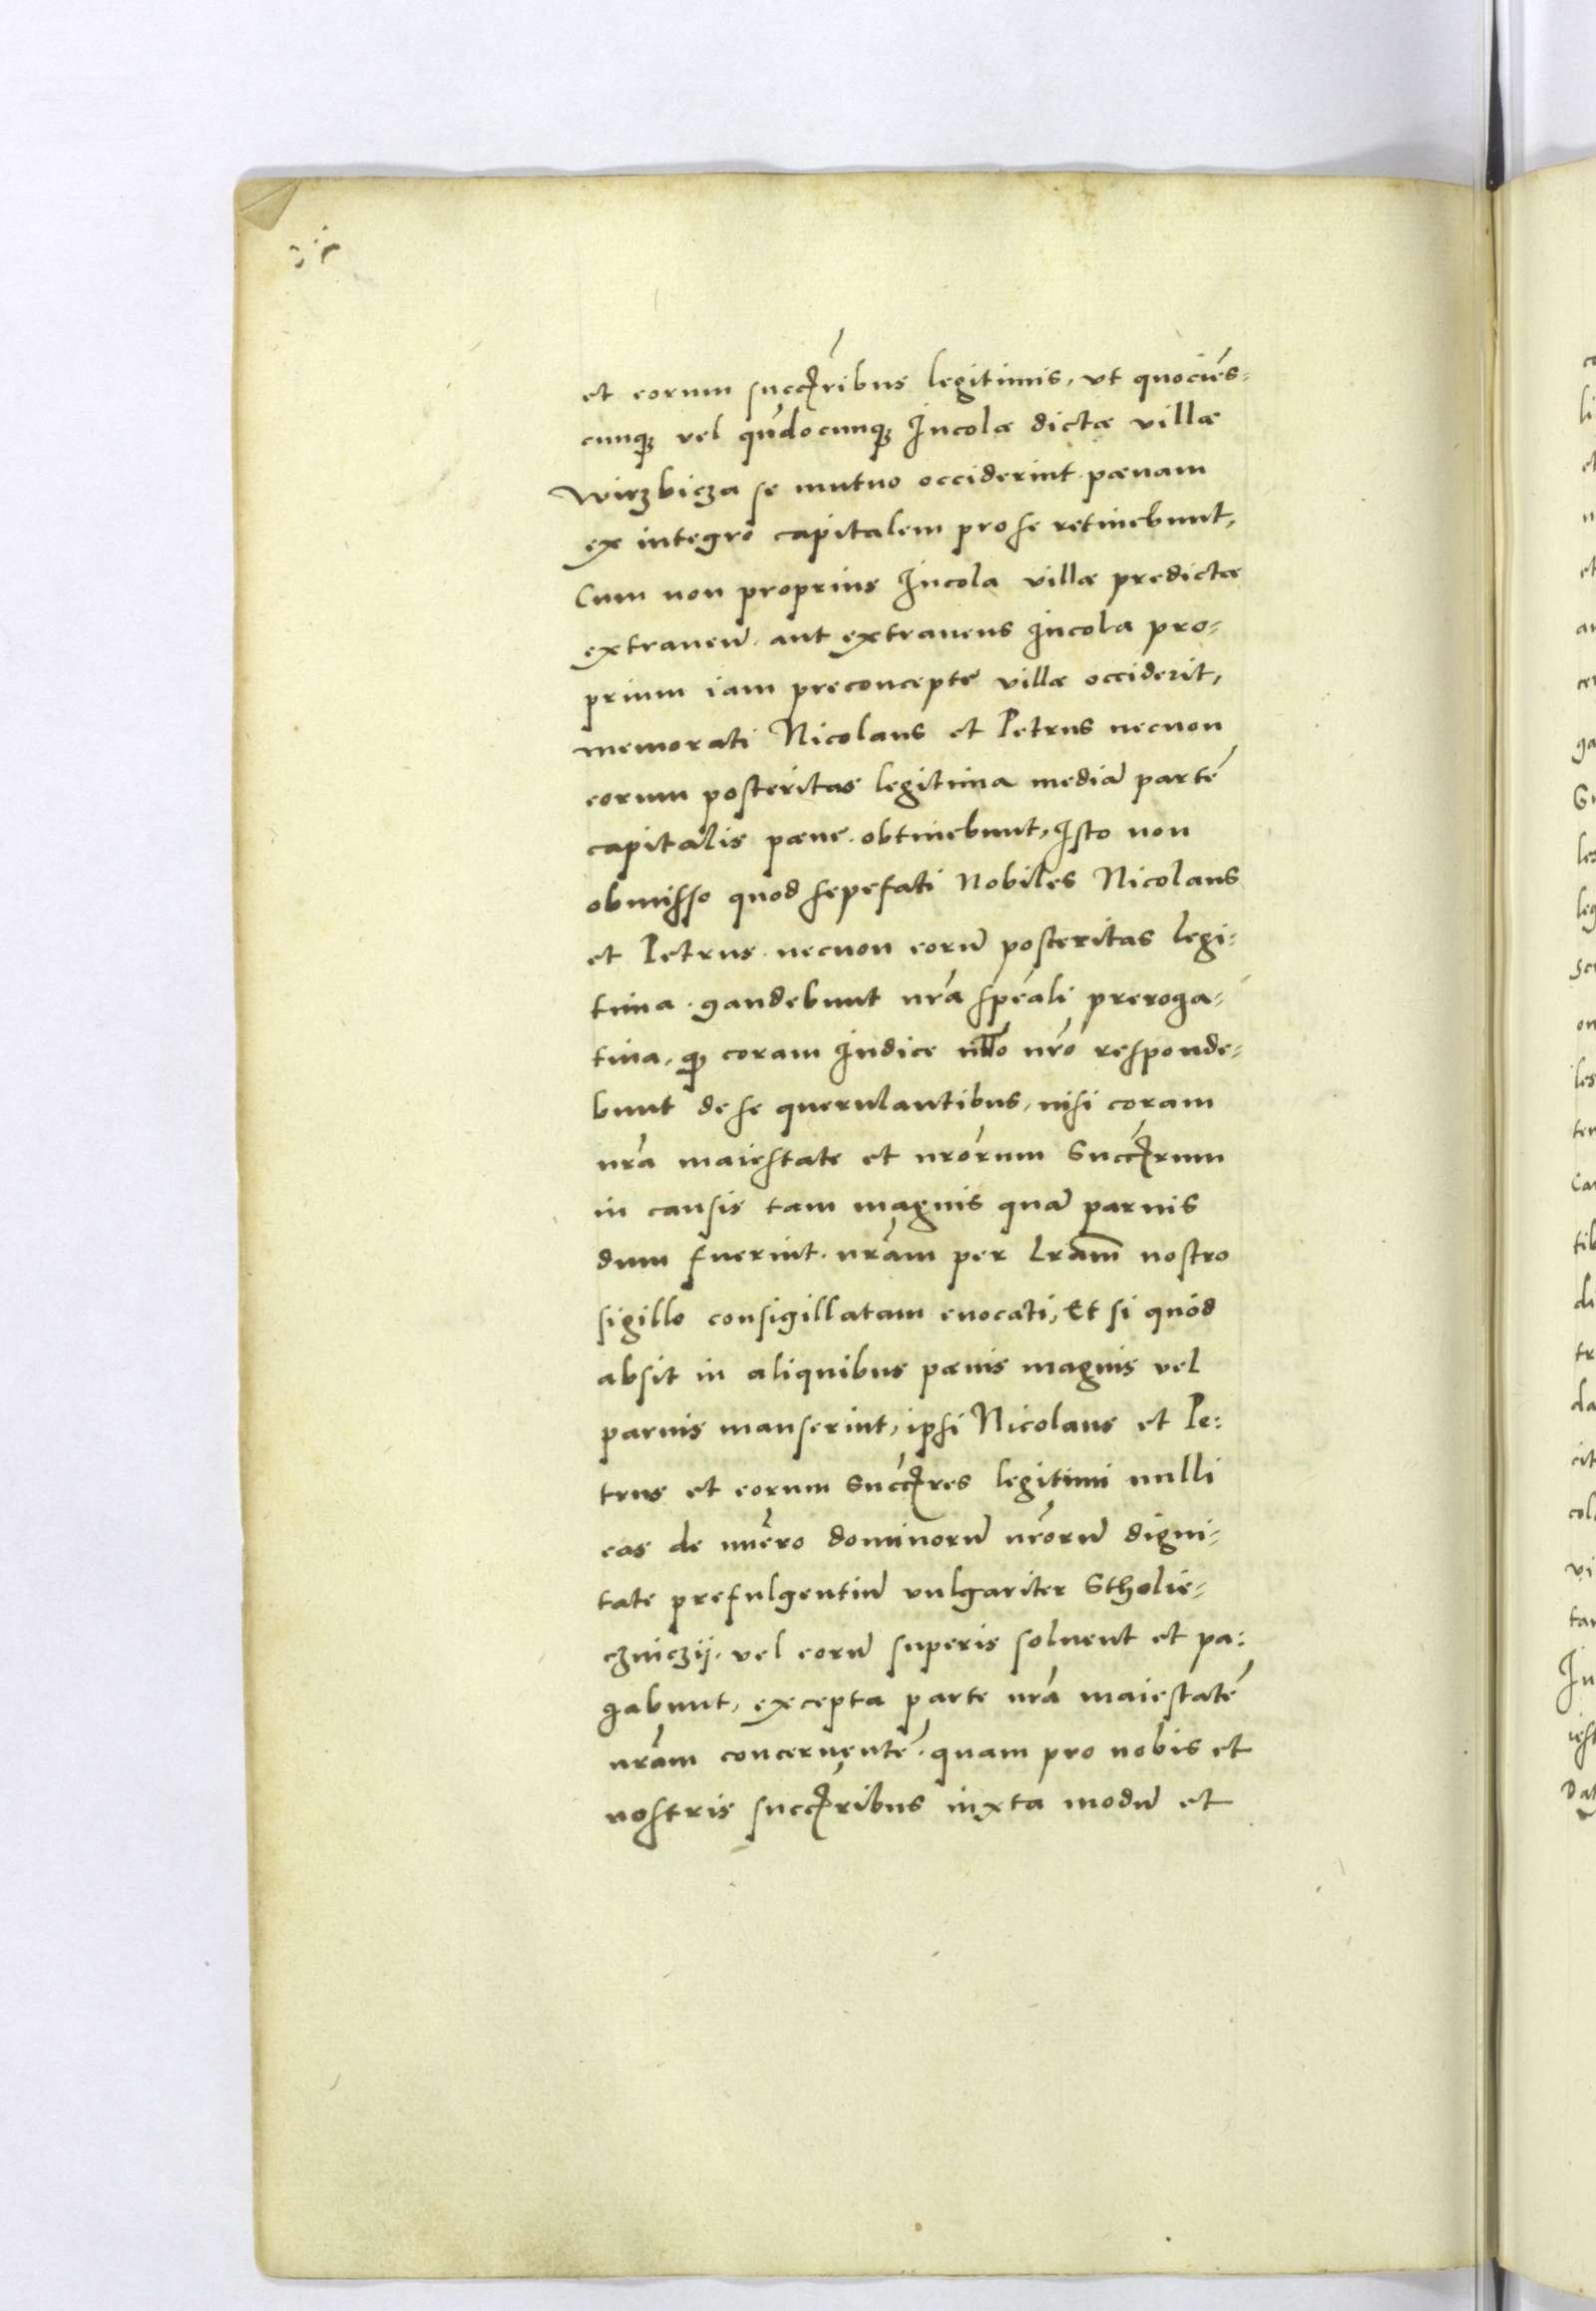 et eorum succẹribus legitimis, vt quociēs-
cunqꝫ vel qūdocunqꝫ Incolæ dictæ villæ
Wirzbicza se mutuo occiderint. pœnam
ex integro capitalem pro se retinebunt,
Cum non proprius Incola villæ predictæ
extraneū. aut extraneus Incola pro-
prium iam preconceptæ villæ occiderit,
memorati Nicolaus et Petrus necnon
eorum posteritas legitima mediā partē
capitalis pœne. obtinebunt, Isto non
obmisso quod sepefati Nobiles Nicolaus
et Petrus. necnon eorū posteritas legi-
tima. gaudebunt nrā spēali preroga-
tiua, qꝫ coram Iudice nullo nrō responde-
bunt de se querulantibus, nisi coram
nrā maiestate et nrōrum Succrum
in causis tam magnis quā paruis
dum fuerint. nrām per Lrām nostro
sigillo consigillatam euocati, Et si quod
absit in aliquibus pœnis magnis vel
paruis manserint, ipsi Nicolaus et Pe-
trus et eorum Succres legitimi nulli
eas de nūero dominorū nrōrū digni-
tate prefulgentiū vulgariter Stholie-
czniczij. vel eorū superis soluent et pa-
gabunt, excepta parte nrā maiestatē
nrām concernentē. quam pro nobis et
nostris succribus iuxta modū et